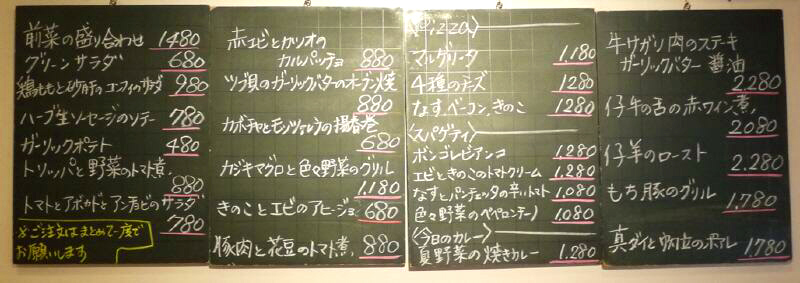 前菜の盛り合わせ 1480
グリーンサラダ 680
鶏ももと砂肝のコンフィのサラダ 980
ハーブ生ソーセージのソテー 780
ガーリックポテト 480
トリッパと野菜のトマト煮
880
トマトとアボカドとアンチョビのサラダ
780
※ご注文はまとめて一度で
お願いします
赤エビとカツオの
カルパッチョ 880
ツブ貝のガーリックバターのオーブン焼
880
カボチャとモッツァレラの揚春巻
680
カジキマグロと色々野菜のグリル
1,180
きのことエビのアヒージョ 680
豚肉と花豆のトマト煮 880
〈Pizza〉
マルゲリータ 1,180
4種のチーズ 1280
なす、ベーコン、きのこ 1280
〈スパゲティ〉
ボンゴレビアンコ 1,280
エビときのこのトマトクリーム 1,280
なすとパンチェッタの辛いトマト 1,080
色々野菜のペペロンチーノ 1,080
〈今日のカレー〉
夏野菜の焼きカレー 1,280
牛ハガリ肉のステーキ
ガーリックバター醤油
2,280
仔牛の舌の赤ワイン煮
2080
仔羊のロースト
2,280
もち豚のグリル
1,780
真ダイと のポアレ 1,780